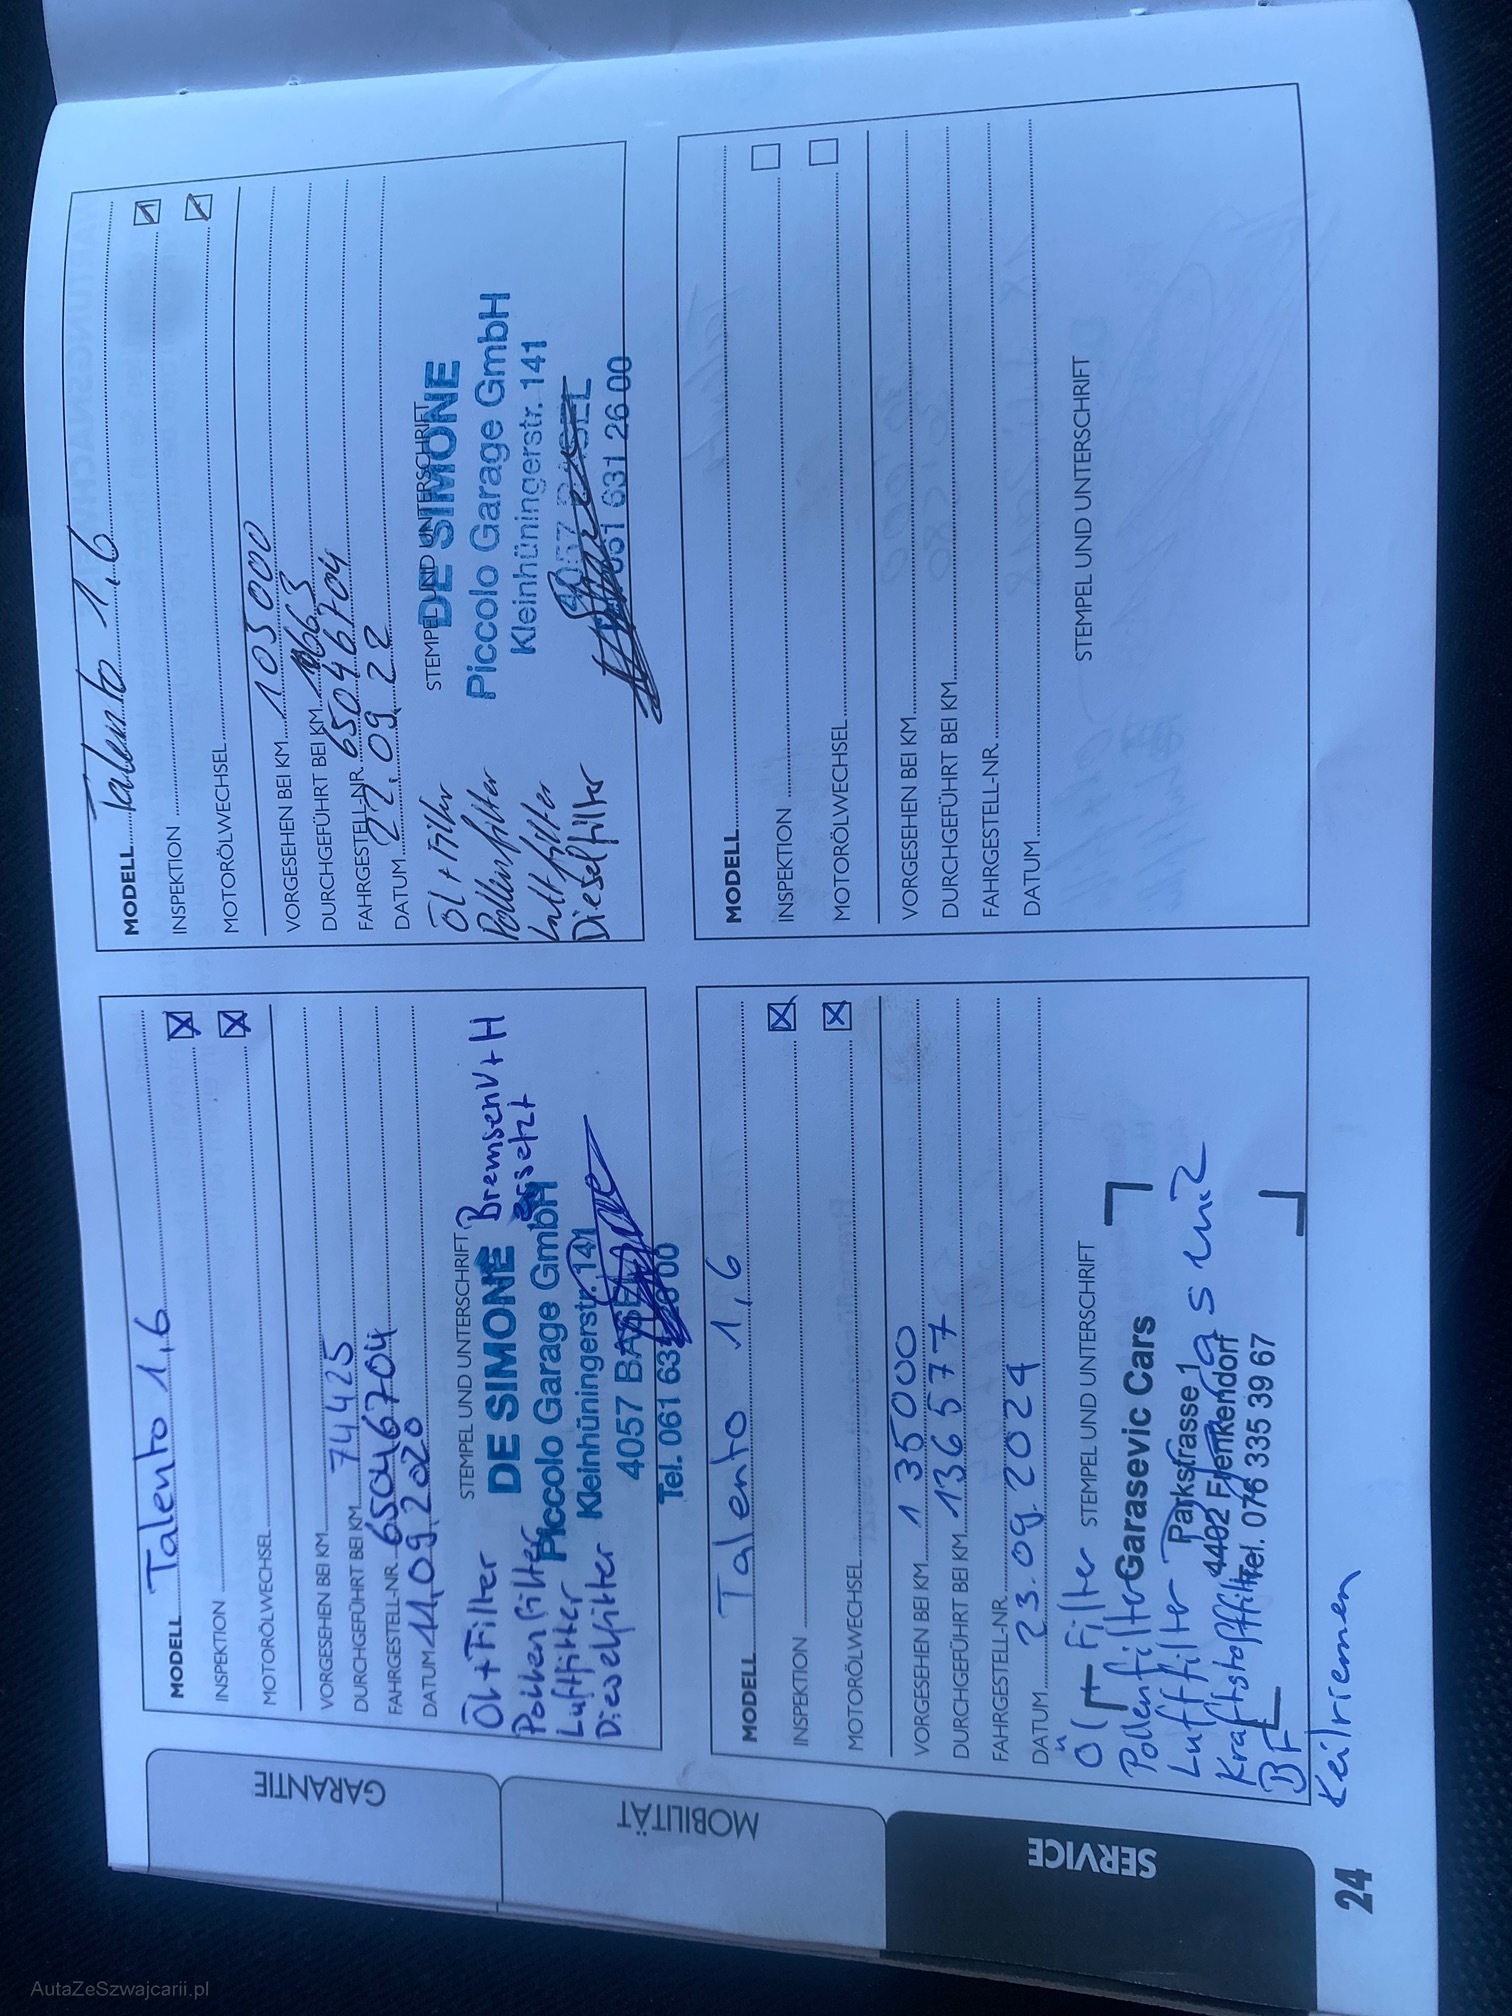 MODELL Talento 1,6
INSPEKTION
MOTORÖLWECHSEL
VORGESEHEN BEI KM
DURCHGEFÜHRT BEI KM 74425
FAHRGESTELL-NR. 65046704
DATUM 11.09.2020
STEMPEL UND UNTERSCHRIFT
Öl+Filter
Pollenfilter
Luftfilter
Dieselfilter
Bremsen V+H
ersetzt
DE SIMONE
Piccolo Garage GmbH
Kleinhüningerstr. 141
4057 BASEL
Tel. 061 631 26 00
MODELL Talento 1,6
INSPEKTION
MOTORÖLWECHSEL
VORGESEHEN BEI KM 105000
DURCHGEFÜHRT BEI KM
FAHRGESTELL-NR. 65046704
DATUM 22.09.22
STEMPEL UND UNTERSCHRIFT
Öl+Filter
Pollenfilter
Luftfilter
Dieselfilter
DE SIMONE
Piccolo Garage GmbH
Kleinhüningerstr. 141
4057 BASEL
061 631 26 00
MODELL Talento 1,6
INSPEKTION
MOTORÖLWECHSEL
VORGESEHEN BEI KM 135000
DURCHGEFÜHRT BEI KM 136577
FAHRGESTELL-NR.
DATUM 23.09.2024
STEMPEL UND UNTERSCHRIFT
Öl + Filter
Pollenfilter
Luftfilter
Kraftstofffilter
BF
Keilriemen
Garasevic Cars
Parkstrasse 1
4402 Frenkendorf
Tel. 076 335 39 67
MODELL
INSPEKTION
MOTORÖLWECHSEL
VORGESEHEN BEI KM
DURCHGEFÜHRT BEI KM
FAHRGESTELL-NR.
DATUM
STEMPEL UND UNTERSCHRIFT
GARANTIE
MOBILITÄT
SERVICE
24
AutaZeSzwajcarii.pl